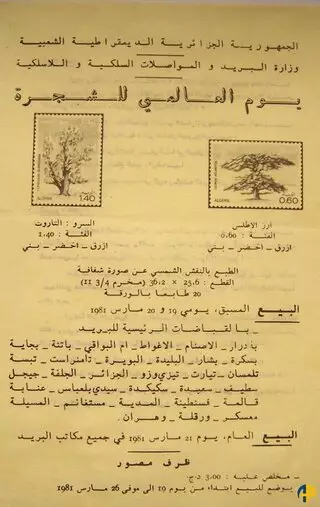 الجمهورية الجزائرية الديمقراطية الشعبية
وزارة البريد و المواصلات السلكية و اللاسلكية
يوم العالمي للشجرة
ALGERIA 1.40
ALGERIA 0.60
السرو : التاروت
الفئة : 1.40
ازرق ـ اخضر ـ بني
ارز الاطلس
الفئة : 0.60
ازرق ـ اخضر ـ بني
الطبع بالنقش الشمسي عن صورة شفافة
القطع : 23,6 x 36,2 (مخرم 3/4 11)
20 طابعا بالورقة
البيع المسبق، يومي 19 و 20 مارس 1981
ـ بالقباضات الرئيسية للبريد
بادرار ـ الاصنام ـ الاغواط ـ ام البواقي ـ باتنة ـ بجاية
بسكرة ـ بشار ـ البليدة ـ البويرة ـ تامنراست ـ تبسة
تلمسان ـ تيارت ـ تيزي وزو ـ الجزائر ـ الجلفة ـ جيجل
سطيف ـ سعيدة ـ سكيكدة ـ سيدي بلعباس ـ عنابة
قالمة ـ قسنطينة ـ المدية ـ مستغانم ـ المسيلة
معسكر ـ ورقلة ـ وهران.
البيع العام، يوم 21 مارس 1981 في جميع مكاتب البريد
ظرف مصور
ـ مخلص عليه : 3.00 د.ج.
يوضع للبيع ابتداء من يوم 19 الى موفى 26 مارس 1981